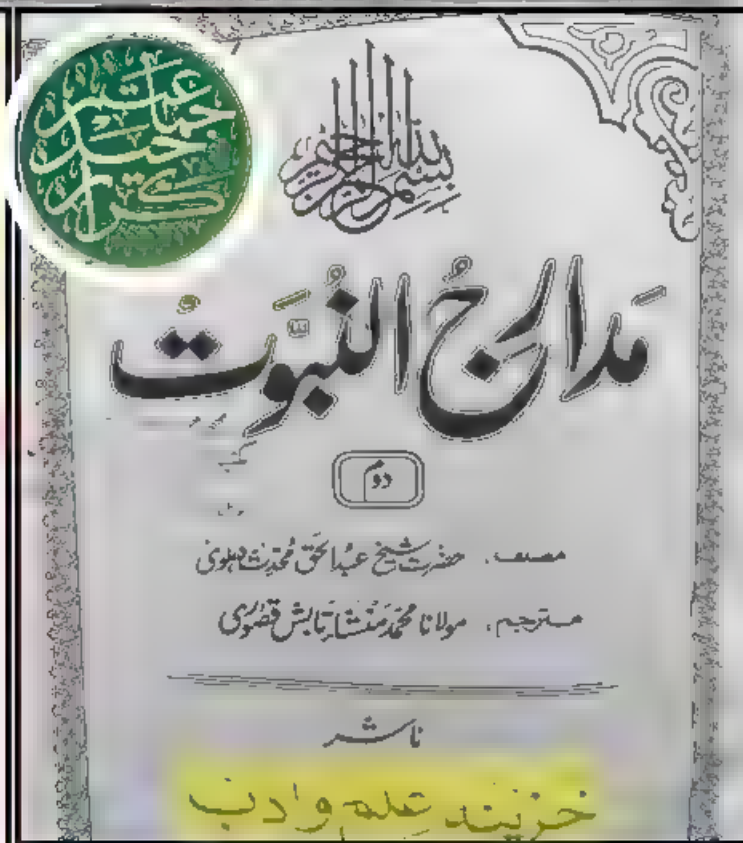 جماعت
حیدر
کرار
بسم اللہ الرحمن الرحیم
مدارج النبوت
دوم
مصنف، حضرت شیخ عبدالحق محدث دہلوی
مترجم، مولانا محمد منشا تابش قصوری
ناشر
خزینہ علم و ادب